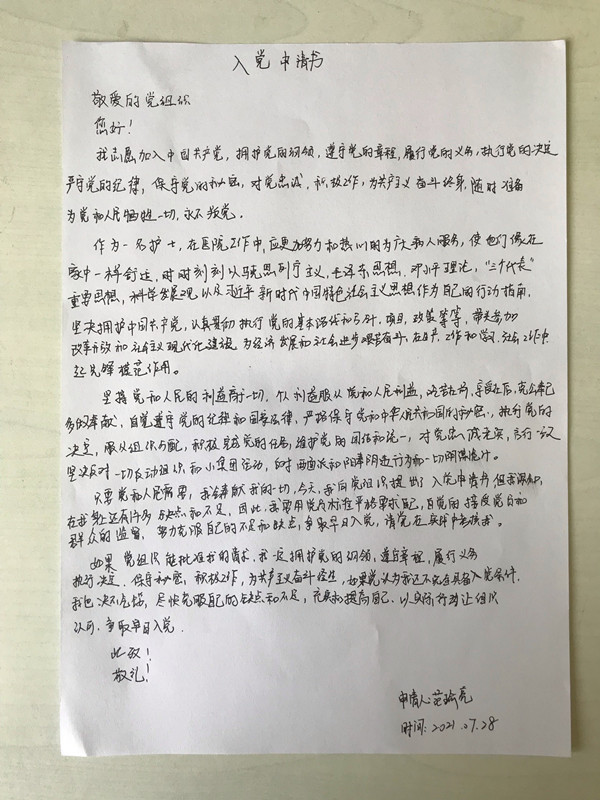 入党申请书
敬爱的党组织
您好！
我志愿加入中国共产党，拥护党的纲领，遵守党的章程，履行党的义务，执行党的决定
严守党的纪律，保守党的秘密，对党忠诚，积极工作，为共产主义奋斗终身，随时准备
为党和人民牺牲一切，永不叛党。
作为一名护士，在医院工作中，应更加努力和热心的为广大病人服务，使他们像在
家中一样舒适，时时刻刻以马克思列宁主义，毛泽东思想，邓小平理论，“三个代表”
重要思想，科学发展观以及习近平新时代中国特色社会主义思想作为自己的行动指南，
坚决拥护中国共产党，认真贯彻执行党的基本路线和方针，项目，政策等等，带头参加
改革开放和社会主义现代化建设，为经济发展和社会进步艰苦奋斗，在生产，工作和学习，社会工作中
起先锋模范作用。
坚持党和人民的利益高于一切，个人利益服从党和人民利益，吃苦在前，享受在后，克公奉己
多做奉献，自觉遵守党的纪律和国家法律，严格保守党和中华人民共和国的秘密，执行党的
决定，服从组织分配，积极完成党的任务，维护党的团结和统一，对党忠诚老实，言行一致
坚决反对一切反动组织和小集团活动，反对两面派和阳奉阴违行为和一切阴谋诡计。
只要党和人民需要，我会奉献我的一切，今天，我向党组织提出了入党申请书但我深知，
在我身上还有许多缺点和不足，因此，我要用党员标准严格要求自己，自觉的接受党员和
群众的监督，努力克服自己的不足和缺点，争取早日入党，请党在实践中考验我。
如果党组织能批准我的请求，我一定拥护党的纲领，遵守章程，履行义务
执行决定，保守秘密，积极工作，为共产主义奋斗终生，如果党认为我还不完全具备入党条件，
我也决不气馁，尽快克服自己的缺点和不足，充实和提高自己，以实际行动让组织
认可，争取早日入党。
此致！
敬礼！
申请人：范瑜亮
时间：2021.07.28